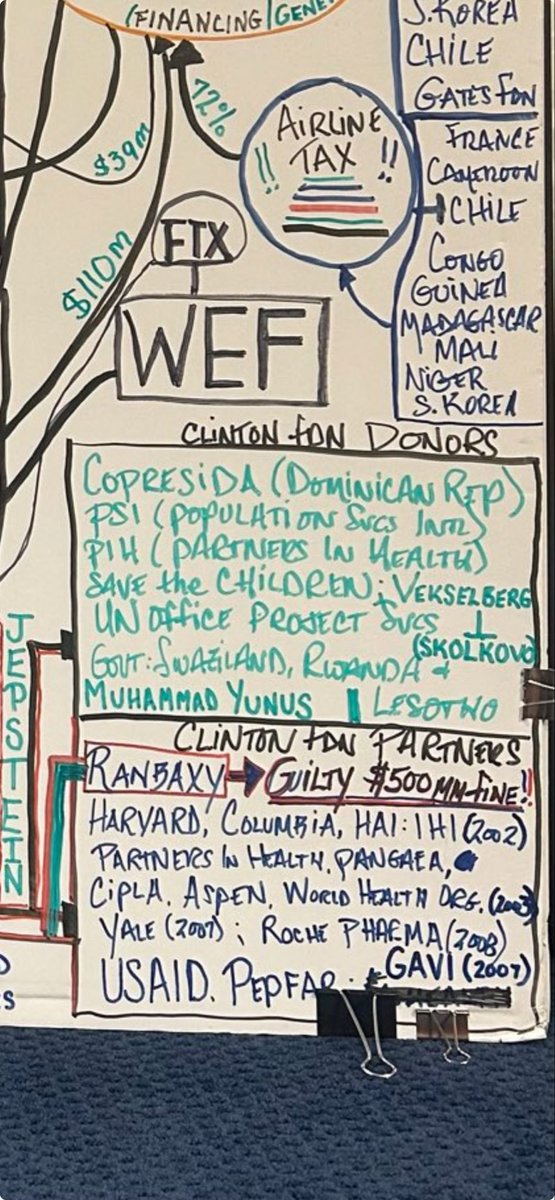 (FINANCING/GENE
S. KOREA
CHILE
GATES FDN
72%
$39M
$110M
AIRLINE
!! TAX !!
FTX
WEF
FRANCE
CAMEROON
CHILE
CONGO
GUINEA
MADAGASCAR
MALI
NIGER
S. KOREA
CLINTON FDN DONORS
COPRESIDA (DOMINICAN REP)
PSI (POPULATION SVCS INTL)
PIH (PARTNERS IN HEALTH)
SAVE the CHILDREN; VEKSELBERG
UN OFFICE PROJECT SVCS
(SKOLKOVO)
GOVT: SWAZILAND, RWANDA &
MUHAMMAD YUNUS | LESOTWO
CLINTON FDN PARTNERS
RANBAXY → GUILTY $500MM-FINE!!
HARVARD, COLUMBIA, HAI: IHI (2002)
PARTNERS IN HEALTH, PANGAEA,
CIPLA, ASPEN, WORLD HEALTH ORG. (2003)
YALE (2007); ROCHE PHARMA (2008)
USAID. PEPFAR; GAVI (2007)
JEPSTEIN